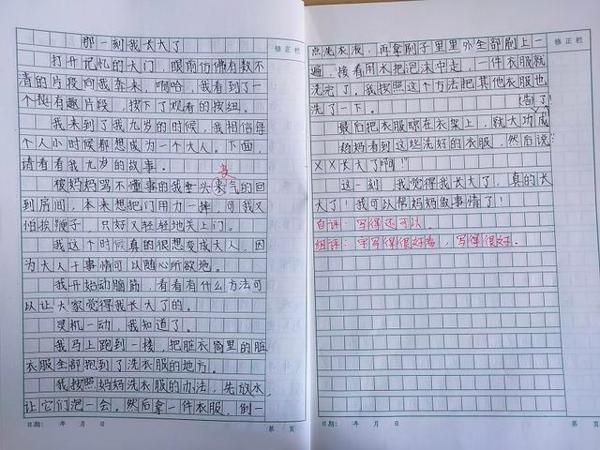 那一刻我长大了
修正栏
打开记忆的大门，眼前仿佛有数不
清的片段向我奔来，哨哈，我看到了一
个挺有趣片段，按下了观看的按纽。
我来到了我九岁的时候，我相信每
个人小时候都想成为一个大人。下面，
请看看我九岁的故事。
被妈妈骂不懂事的我垂头丧气的回
到房间，本来想把门用力一摔，可我又
怕挨鞭子，只好又轻轻地关上门。
我这个时候真的很想变成大人，因
为大人干事情可以随心所欲地。
我开始动脑筋，看看有什么方法可
以让大家觉得我长大了的。
灵机一动，我知道了。
我马上跑到一楼，把脏衣篓里的脏
衣服全部抱到了洗衣服的地方。
我按照妈妈洗衣服的办法，先放水，
让它们泡一会。然后拿一件衣服，倒一
日期： 年 月 日
第 页
修正栏
点洗衣液，再拿刷子里里外外全部刷上一
遍，接着用水把泡沫冲走，一件衣服就
洗完了。我按照这个方法把其他衣服也
洗了一下。
最后把衣服晾在衣架上，就大功告成了
妈妈看到这些洗好的衣服，然后说：
XX长大了啊！"
这一刻，我觉得我长大了，真的长
大了！我可以帮妈妈做事情了！
自评：写得还可以。
组评：字写得很好看，写得很好。
日期： 年 月 日
第 页